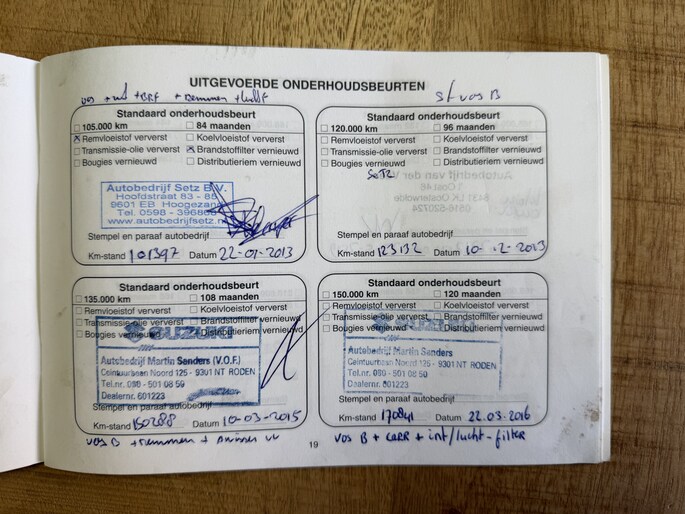 UITGEVOERDE ONDERHOUDSBEURTEN
Standaard onderhoudsbeurt
105.000 km 84 maanden
Remvloeistof ververst Koelvloeistof ververst
Transmissie-olie ververst Brandstoffilter vernieuwd
Bougies vernieuwd Distributieriem vernieuwd
Autobedrijf Setz B.V.
Hoofdstraat 83 - 85
9601 EB Hoogezand
Tel. 0598 - 396860
www.autobedrijfsetz.nl
Stempel en paraaf autobedrijf
Km-stand 101397 Datum 22-01-2013
St VOS B
Standaard onderhoudsbeurt
120.000 km 96 maanden
Remvloeistof ververst Koelvloeistof ververst
Transmissie-olie ververst Brandstoffilter vernieuwd
Bougies vernieuwd Distributieriem vernieuwd
Setz
Stempel en paraaf autobedrijf
Km-stand 123132 Datum 10-12-2013
Standaard onderhoudsbeurt
135.000 km 108 maanden
Remvloeistof ververst Koelvloeistof ververst
Transmissie-olie ververst Brandstoffilter vernieuwd
Bougies vernieuwd Distributieriem vernieuwd
SUZUKI
Autobedrijf Martin Sanders (V.O.F.)
Ceintuurbaan Noord 125 - 9301 NT RODEN
Tel.nr. 050 - 501 08 50
Dealernr. 601223
Stempel en paraaf autobedrijf
Km-stand 150288 Datum 10-03-2015
VOS B + remmen +
Standaard onderhoudsbeurt
150.000 km 120 maanden
Remvloeistof ververst Koelvloeistof ververst
Transmissie-olie ververst Brandstoffilter vernieuwd
Bougies vernieuwd Distributieriem vernieuwd
Autobedrijf Martin Sanders
Ceintuurbaan Noord 125 - 9301 NT RODEN
Tel.nr. 050 - 501 08 50
Dealernr. 601223
Stempel en paraaf autobedrijf
Km-stand 170841 Datum 22.03-2016
VOS B + CARR + int/lucht-filter
19